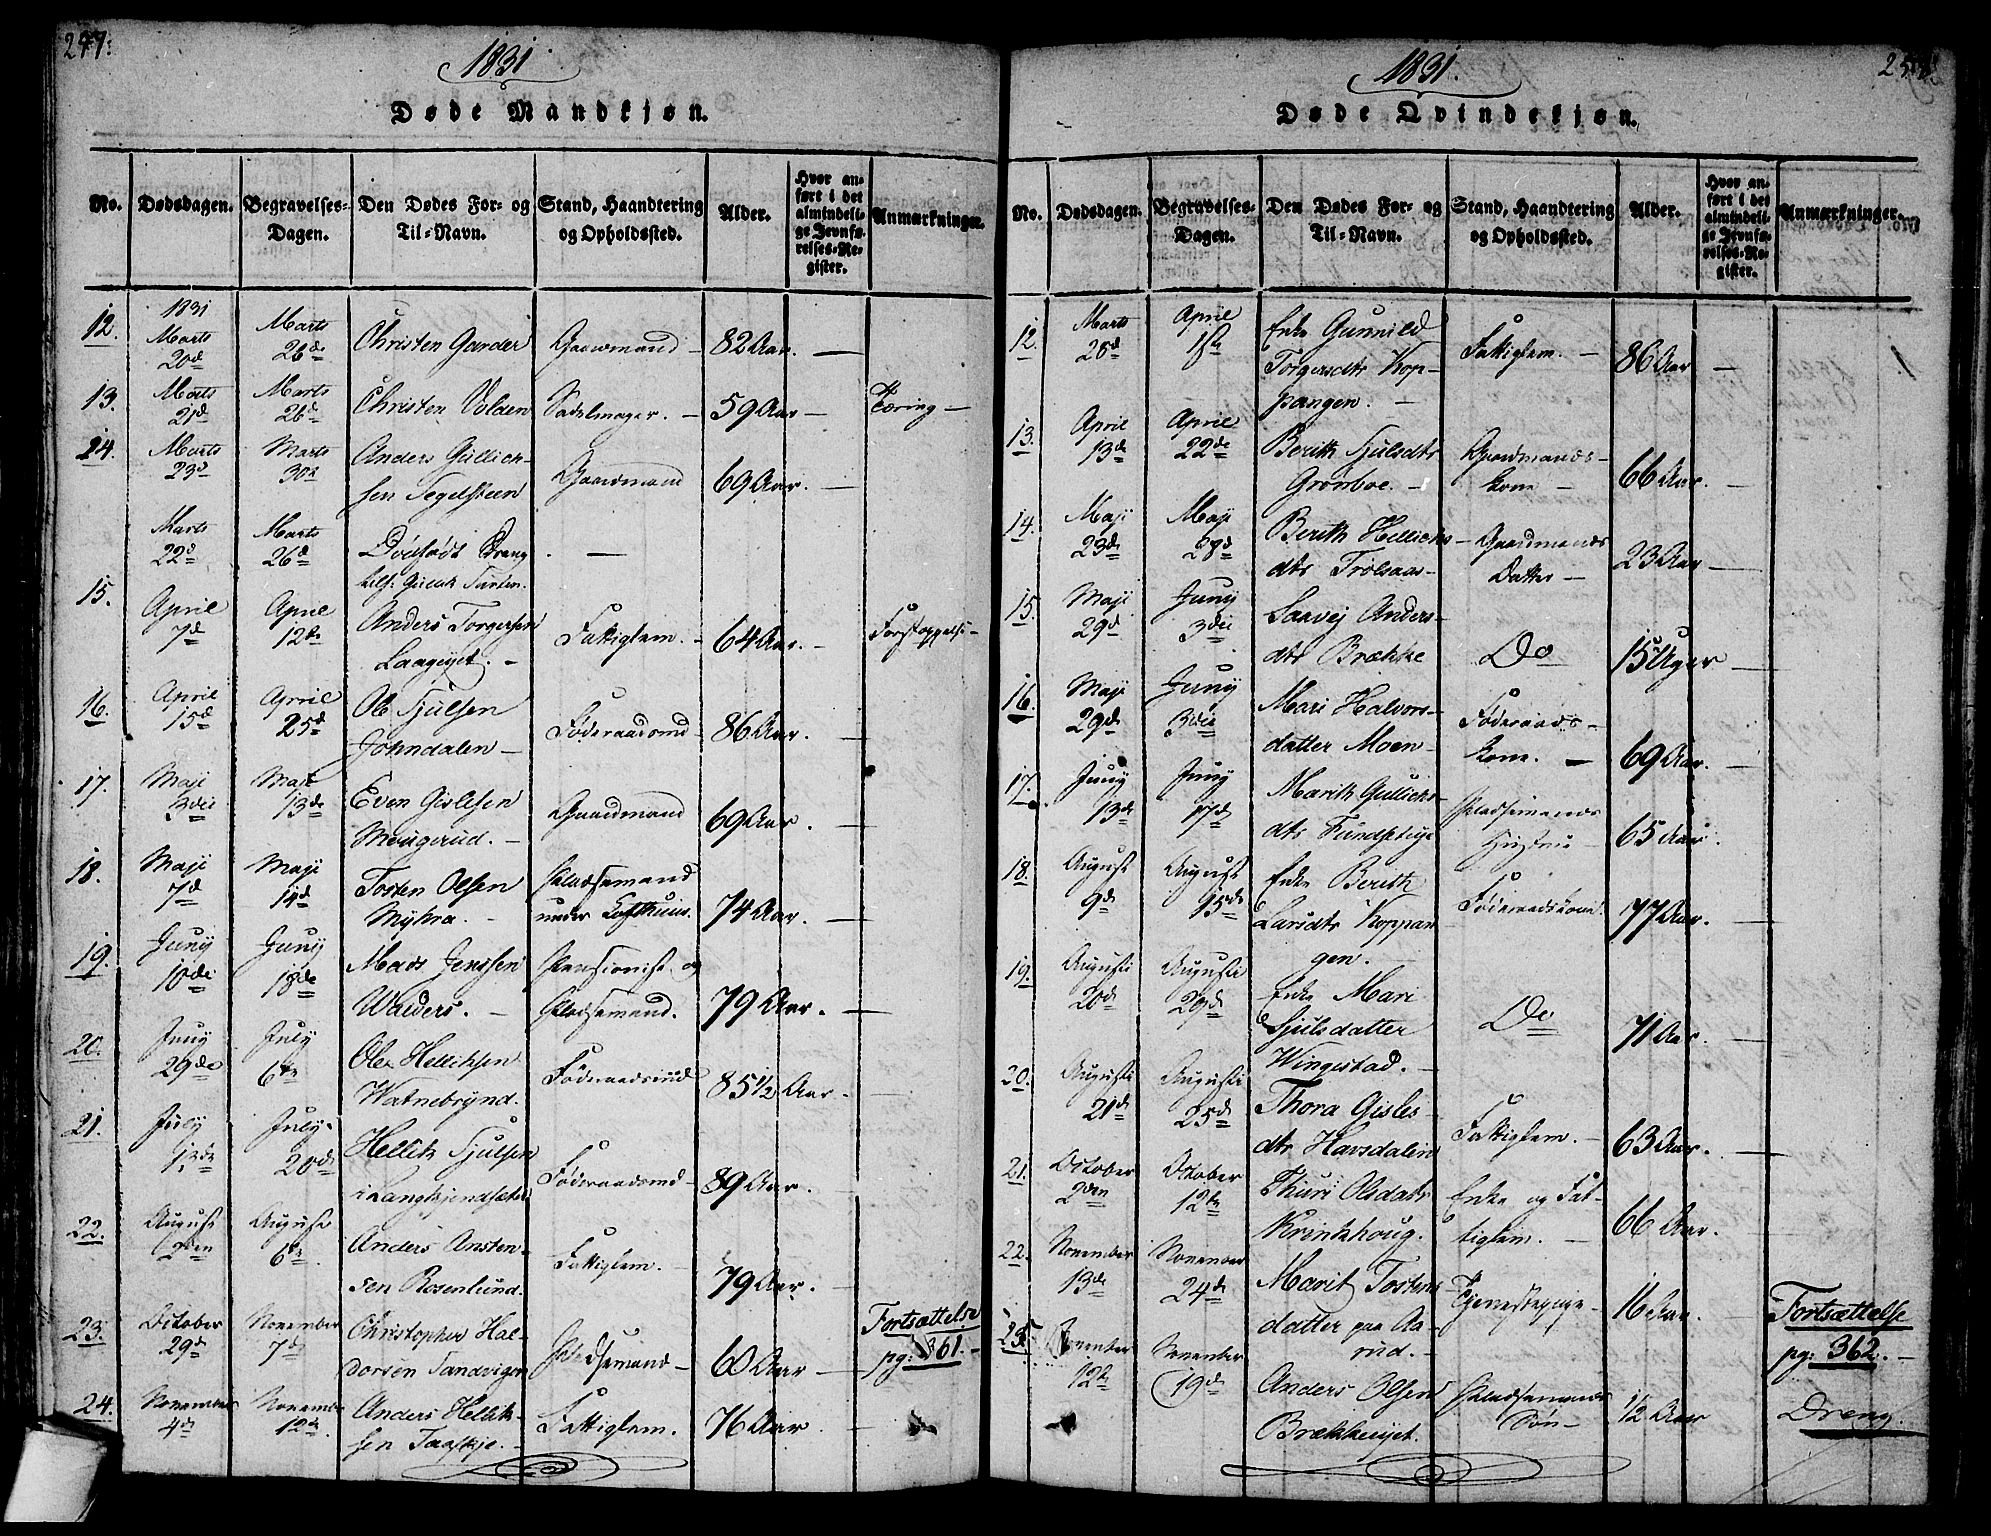 1831.
Døde Mandkjøn.
No. Dødsdagen. Begravelses-Dagen. Den Dødes For- og Til-Navn. Stand, Haandtering og Opholdssted. Alder. Hvor anført i det almindelige Jevnførelses-Register. Anmærkninger.
12. 1831 Marts 20de Marts 26de Christen Garder Gaardmand 82 Aar. —
13. Marts 21de Marts 26de Christen Volden Sadelmager. — 59 Aar — Tæring —
Marts 23de Marts 30te Anders Gullich-
sen Tegelsteen Gaardmand 69 Aar. —
Marts 22de Marts 26de Dødfødt Dreng —
15. April 7de April 12te Anders Torgersen
Laageiet. — Fattiglem. — 64 Aar. — Forstoppelse —
16. April 15de April 25de Ole Tjulsen
Johndalen — Føderaadsmd — 86 Aar. —
17. Maji 3die Maji 13de Even Gislesen
Gaardmand 69 Aar. —
18. Maji 7de Maji 14de Tosten Olsen
Myhra. — Pladsemand
under Lofthuus. 74 Aar. —
19. Juny 10de Juny 18de Mads Jenssen
Walders. — Pensionist og
Pladsemand. 79 Aar. —
20. Juny 29de July 6te Ole Helliksen
Watnebrynd. Føderaadsmd 85 1/2 Aar. —
21. July 13de July 20de Hellik Tjulsen
i Langtjendsæter Føderaadsmd — 89 Aar. —
22. August 2den August 6te Anders Ansten-
sen Rosenlund. Fattiglem. — 79 Aar. —
23. October 29de November 7de Christopher Hal-
dorsen Sandvigen Pladsemand — 60 Aar — Fortsættelse
pg: 361. —
24. November 4de November 12te Anders Hellik-
sen Fattiglem. 76 Aar —
1831.
Døde Qvindekjøn.
No. Dødsdagen. Begravelses-Dagen. Den Dødes For- og Til-Navn. Stand, Haandtering og Opholdssted. Alder. Hvor anført i det almindelige Jevnførelses-Register. Anmærkninger.
12. Marts 28de April 1ste Enke Gunnild
Torgersdtr Kop-
pangen. — Fattiglem. — 86 Aar —
13. April 13de April 22de Berith Tjulsdtr
Grønboe. — Gaardmands-
kone — 66 Aar. —
14. Maji 23de Maji 28de Berith Helliks-
dtr Trolsaas — Gaardmands
Datter — 23 Aar —
15. Maji 29de Juny 3die Laavej Anders-
dtr Brække Do 15 Uger —
16. Maji 29de Juny 3die Mari Halvors-
datter Moen — Føderaads-
kone. — 69 Aar. —
17. Juny 13de Juny 17de Marith Gullichs-
dtr Pladsemands
Hustru — 65 Aar. —
18. August 9de August 15de Enke Berith
Larsdtr Koppan
gen. — Føderaadskone. 77 Aar. —
19. Augusti 20de Augusti 29de Enke Mari
Tjulsdatter
Wingestad. — Do 71 Aar. —
20. Augusti 21de Augusti 25de Thora Gisles-
dtr Havsdalen Fattiglem. — 63 Aar. —
21. October 2den October 12te Thuri Olsdatr
Krinkhoug. Enke og Fat-
tiglem. — 66 Aar. —
22. November 13de November 24de Marit Tostens
datter paa Aa-
rud. — Tjenestepige — 16 Aar. — Fortsættelse
pg: 362. —
23. November 12te November 19de Anders Olsen
Brækkeiiet. Pladsemands
Søn — 1/2 Aar Dreng.